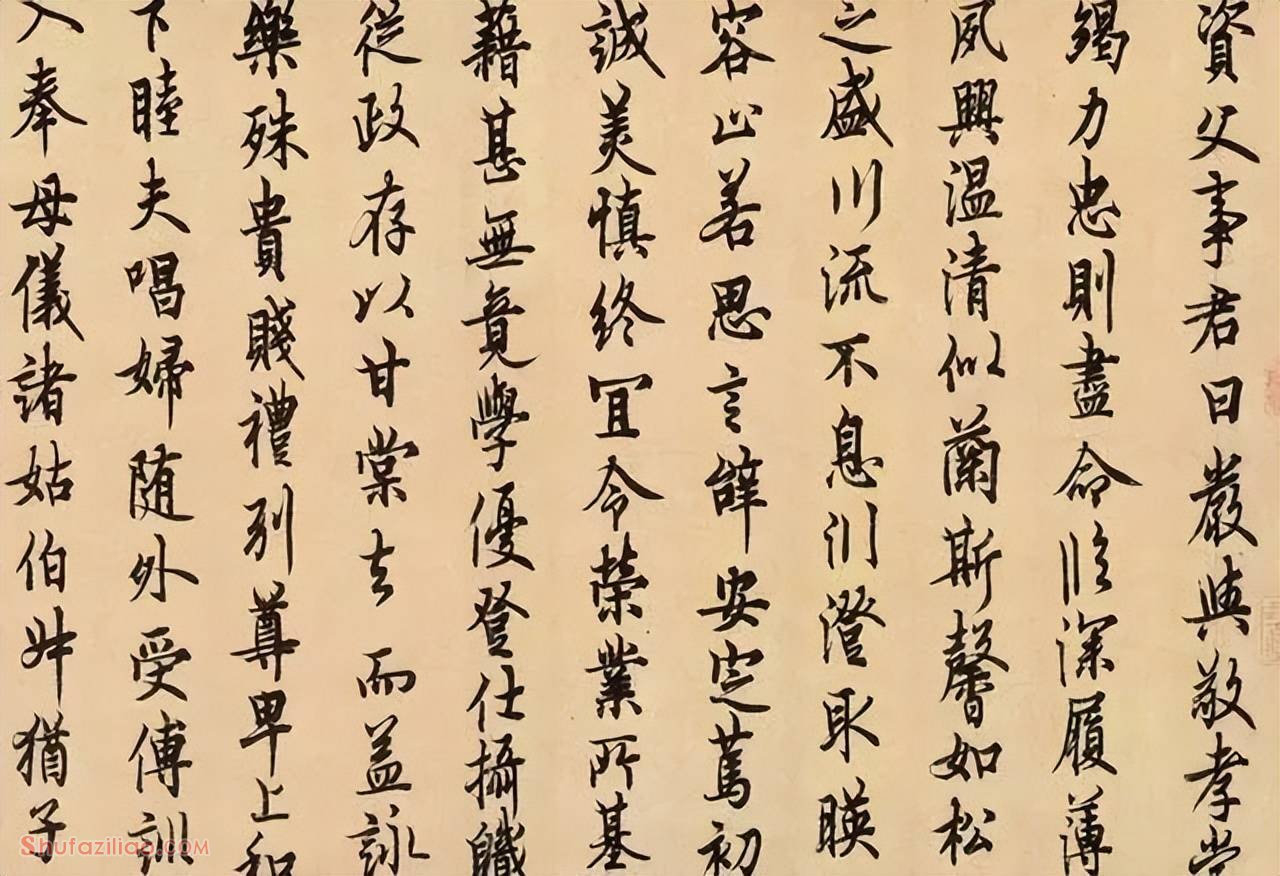 資父事君曰嚴與敬孝當
竭力忠則盡命臨深履薄
夙興温清似蘭斯馨如松
之盛川流不息淵澄取暎
容止若思言辭安定篤初
誠美慎終宜令榮業所基
藉甚無竟學優登仕攝職
從政存以甘棠去而益詠
樂殊貴賤禮别尊卑上和
下睦夫唱婦随外受傅訓
入奉母儀諸姑伯叔猶子
Shufaziliao.COM